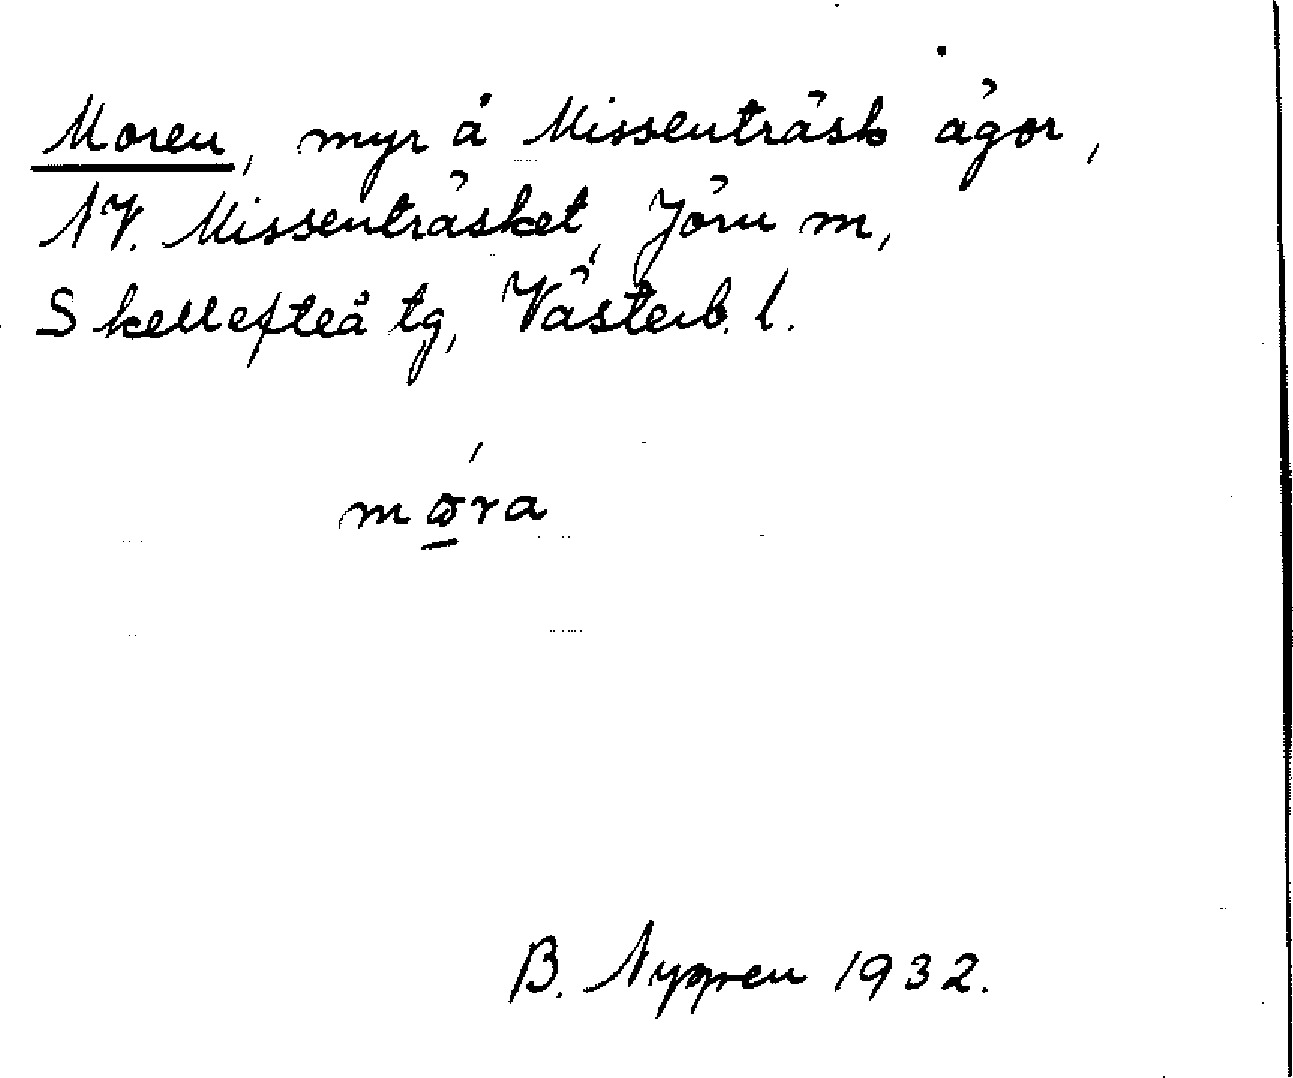 Moren, myr å Missenträsk ägor,
NV. Missenträsket, Jörn m,
Skellefteå tg, Västerb. l.
mώ̲ra
B. Nygren 1932.